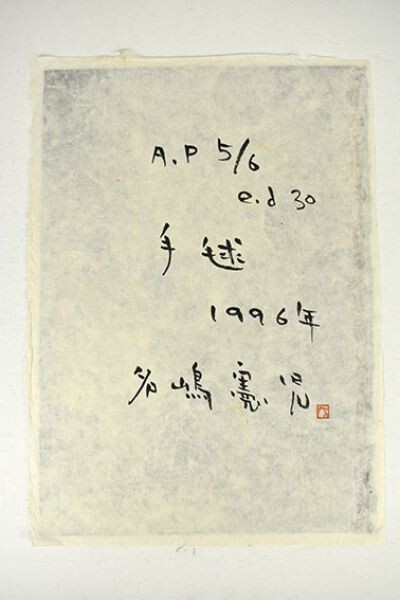 A.P 5/6
e.d 30
手毬
1996年
名嶋憲児